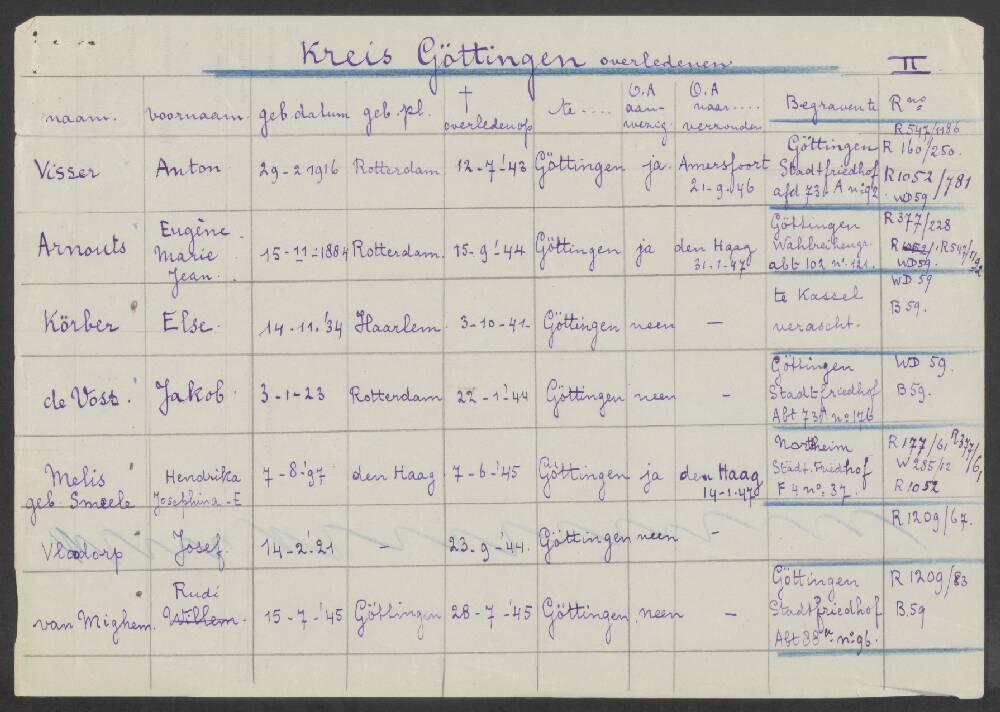 Kreis Göttingen overledenen II
naam. voornaam. geb. datum geb. pl. † overleden op te .... O.A aanwezig. O.A naar .... verzonden Begraven te R no
Visser Anton 29-2-1916 Rotterdam 12-7-'43 Göttingen ja. Amersfoort 21-9-'46 Göttingen Stadtfriedhof afd 73 A no 92 R547/1186 R 160/250. R1052/781 WD 59
Arnouts Eugène Marie Jean. 15-11-1884 Rotterdam. 15-9-'44 Göttingen ja den Haag 31-1-47 Göttingen abt 102 no. 121. R377/228 R547/ WD 59.
Körber Else. 14-11-'34 Haarlem. 3-10-41- Göttingen neen — te Kassel verascht. WD 59 B 59.
de Vos Jakob 3-1-23 Rotterdam 22-1-'44 Göttingen neen - Göttingen Stadtfriedhof Abt 73 A no 176 WD 59. B 59.
Melis geb. Smeele Hendrika Josephina-E 7-8-'97 den Haag 7-6-'45 Göttingen ja den Haag 14-1-47 Northeim Städt. Friedhof F 4 no. 37. R177/61 R377/61 W 285/12 R 1052
Vlodorp Josef. 14-2-'21 - 23-9-'44. Göttingen neen — R1209/67.
van Mighem. Rudi Wilhem. 15-7-'45 Göttingen 28-7-'45 Göttingen. neen - Göttingen Stadtfriedhof Abt 88 no 96. R 1209/83 B.59